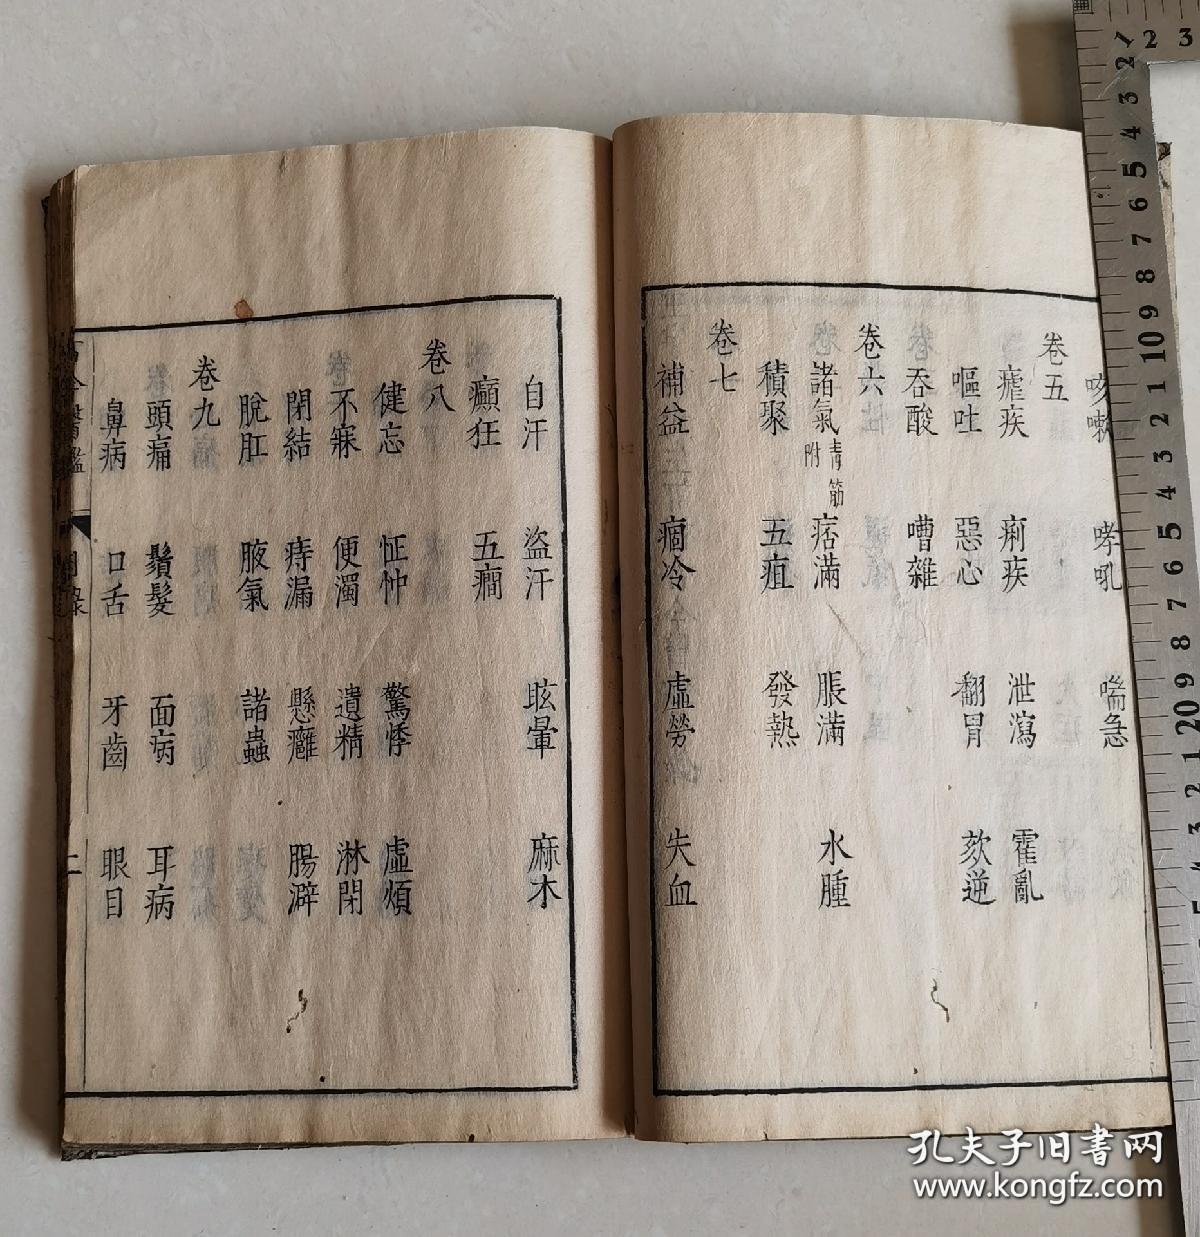 咳嗽 哮吼 喘急
卷五
瘧疾 痢疾 泄瀉 霍亂
嘔吐 惡心 翻胃 欬逆
吞酸 嘈雜
卷六
諸氣青筋附 痞滿 脹滿 水腫
積聚 五疸 發熱
卷七
補益 痼冷 虛勞 失血
自汗 盜汗 眩暈 麻木
癲狂 五癇
卷八
健忘 怔忡 驚悸 虛煩
不寐 便濁 遺精 淋閉
閉結 痔漏 懸癰 腸澼
脫肛 腋氣 諸蟲
卷九
頭痛 鬚髮 面病 耳病
鼻病 口舌 牙齒 眼目
目錄 二
1 2 3
2 3 4 5 6 7 8 9 10 1 2 3 4 5 6 7 8 9 20 1 2 3 4 5
孔夫子旧书网
www.kongfz.com